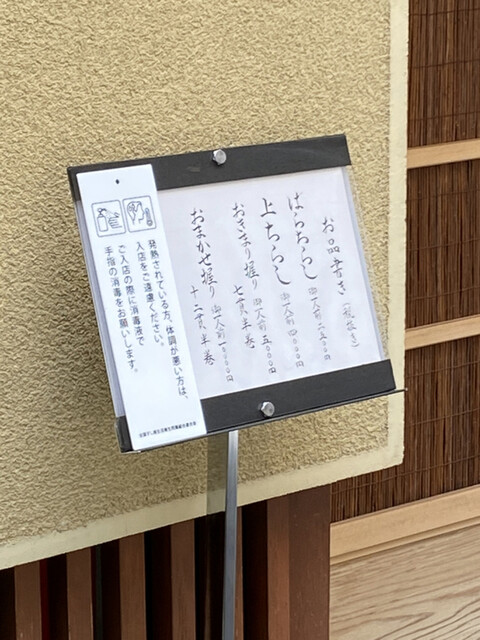 お品書き（税抜き）
ばらちらし 御一人前 二五〇〇円
上ちらし 御一人前 四〇〇〇円
おきまり握り 御一人前 五〇〇〇円
七貫半巻
おまかせ握り 御一人前 一〇〇〇〇円
十二貫半巻
発熱されている方、体調が悪い方は、
入店をご遠慮ください。
ご入店の際に消毒液で
手指の消毒をお願いします。